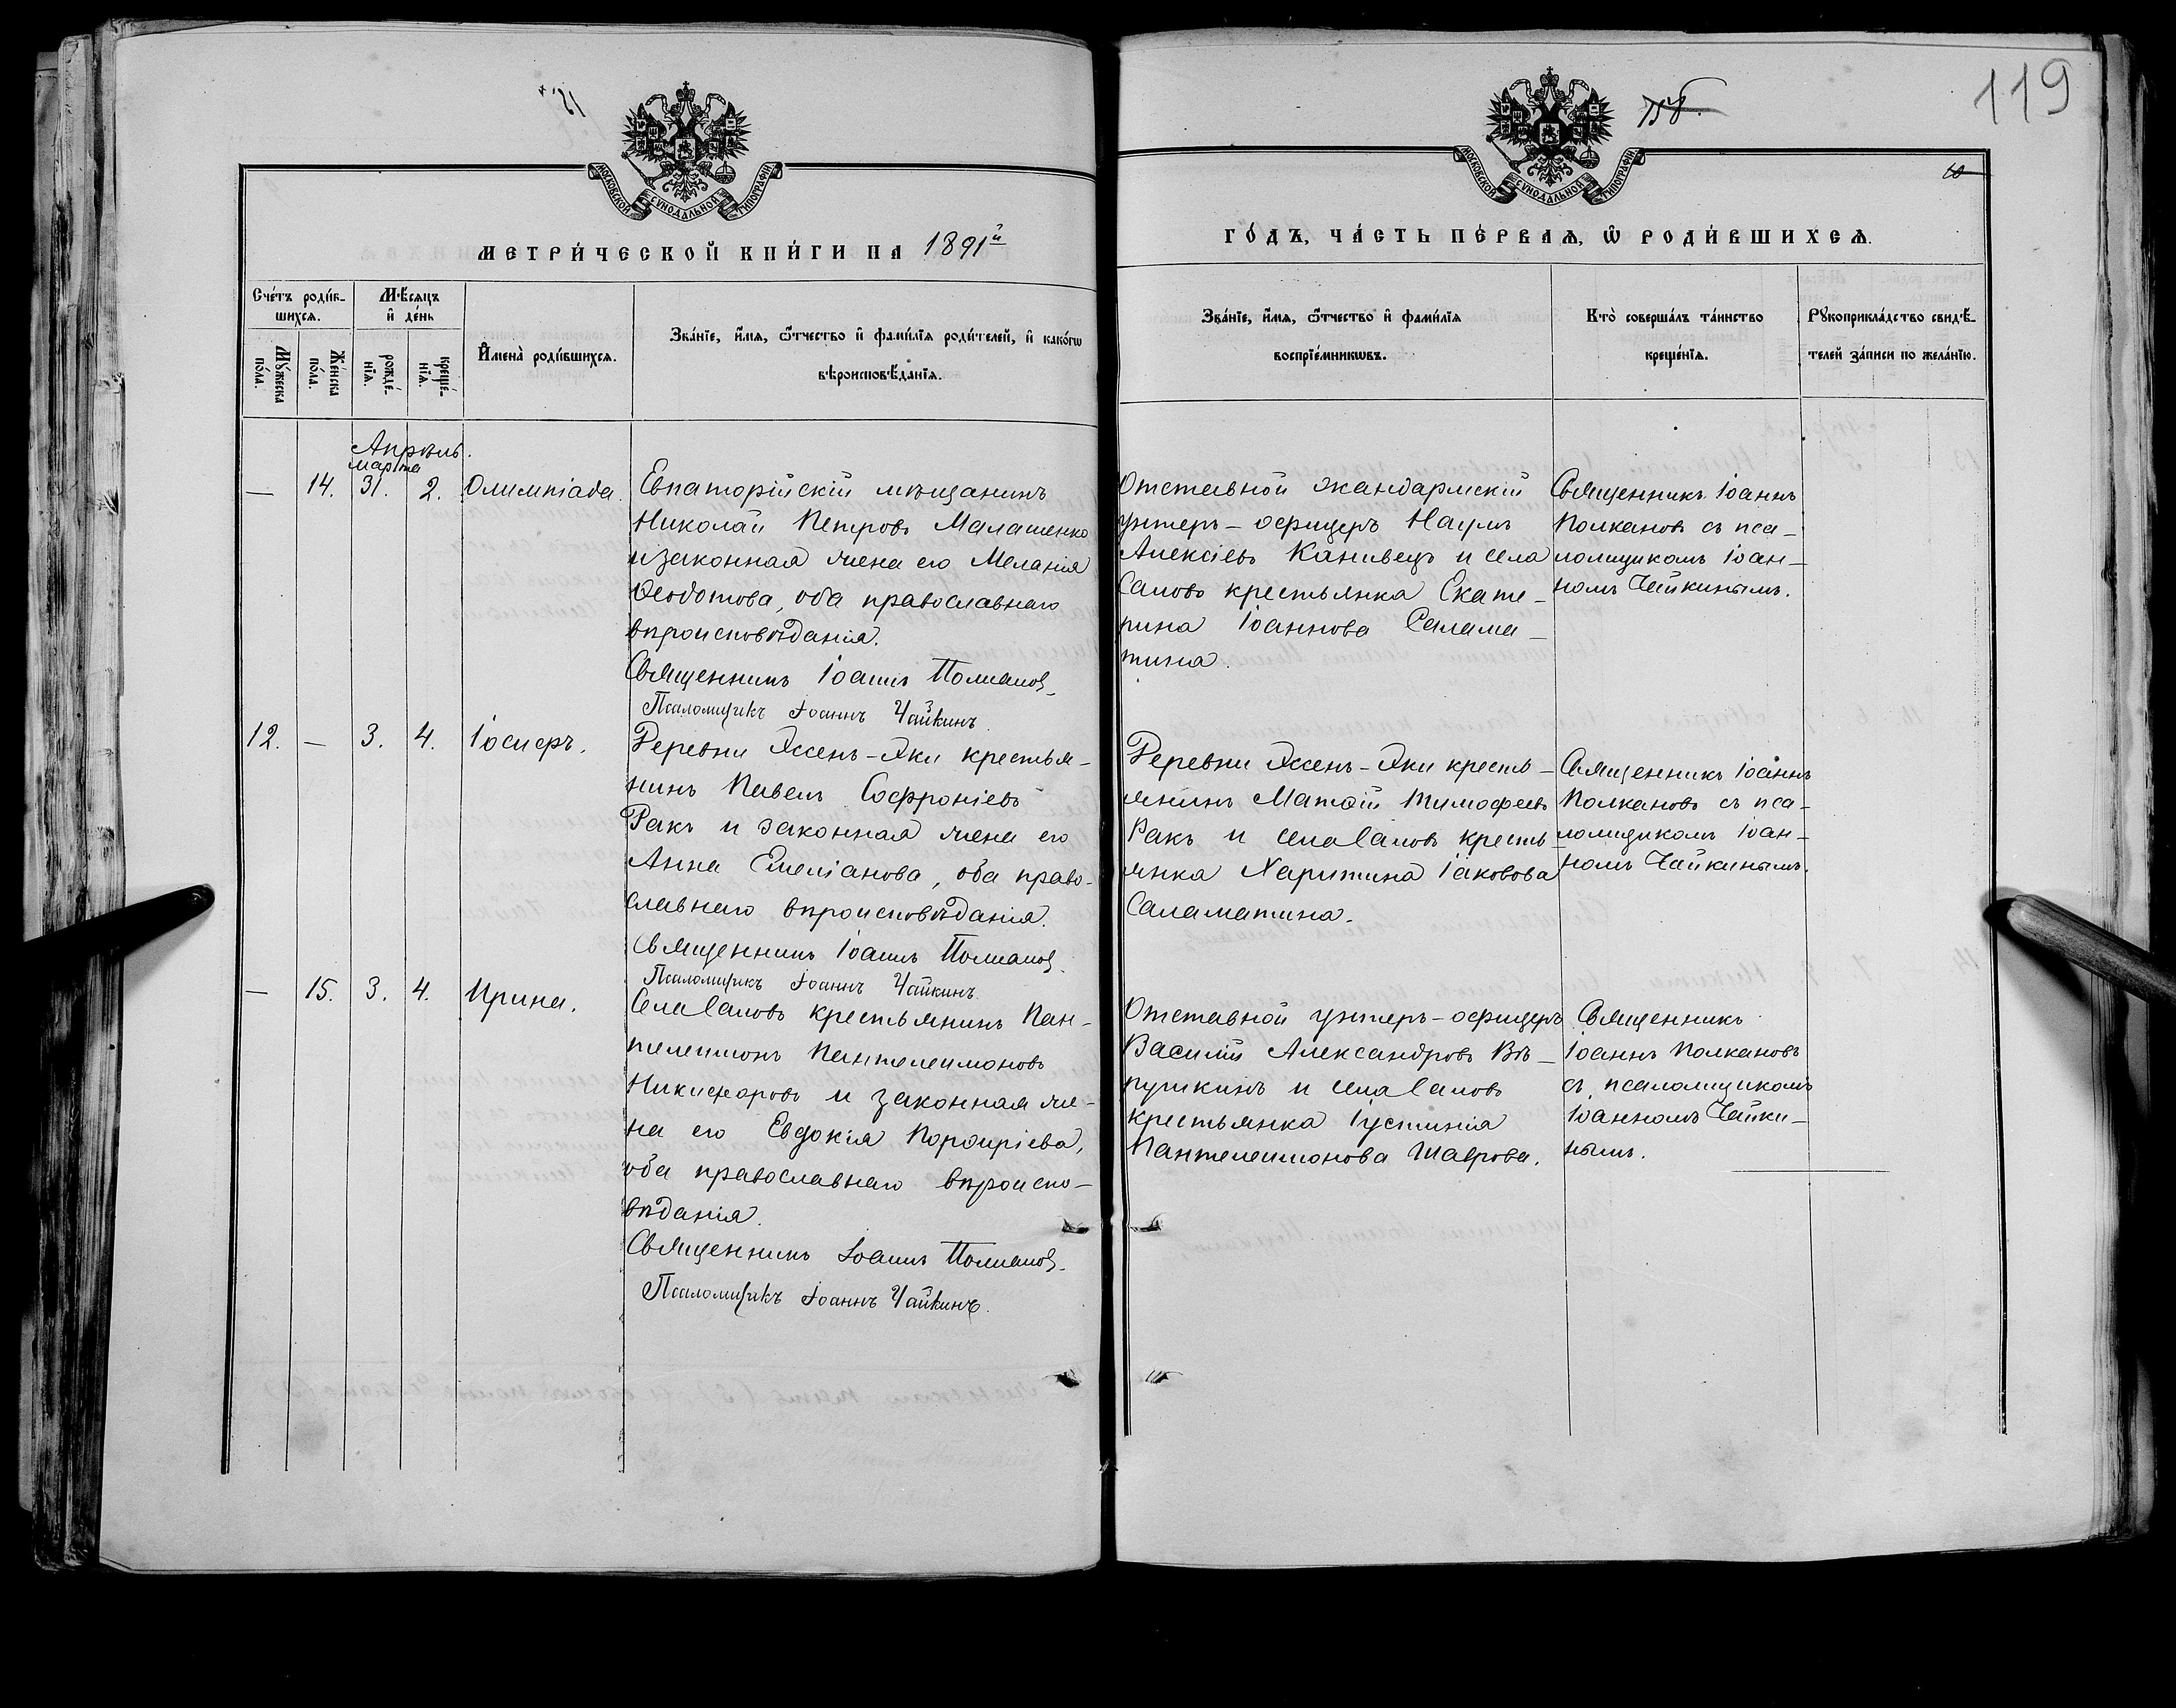 119
МОСКОВСКОЙ СѴНОДАЛЬНОЙ ТИПОГРАФІИ
МОСКОВСКОЙ СѴНОДАЛЬНОЙ ТИПОГРАФІИ
10
МЕТРИ́ЧЕСКОЙ КНИ́ГИ НА 1891й
ГО́ДЪ, ЧА́СТЬ ПЕ́РВАѦ, Ѡ҆ РОДИ́ВШИХСѦ.
Сче́тъ роди́в-
шихсѧ.
Мѹ́жеска
по́ла.
Же́нска
по́ла.
Мѣ́сѧцъ
и҆ де́нь
рожде́-
нїѧ.
креще́-
нїѧ.
И҆мена̀ роди́вшихсѧ.
Зва́нїе, и҆́мѧ, ѻ҆́тчество и҆ фами́лїѧ роди́телей, и҆ како́гѡ
вѣроисповѣ́данїѧ.
Зва́нїе, и҆́мѧ, ѻ҆́тчество и҆ фами́лїѧ
воспрїе́мникѡвъ.
Кто̀ соверша́лъ та́инство
креще́нїѧ.
Рѹкоприкла́дство свидѣ́-
телей за́писи по жела́нїю.
Апрѣль.
марта
— 14. 31. 2. Олимпіада.
Евпаторійскій мѣщанинъ
Николай Петровъ Малашенко
и законная жена его Меланія
Ѳеодотова, оба православнаго
вѣроисповѣданія.
Священникъ Іоаннъ Полканов
Псаломщикъ Іоаннъ Чайкинъ
Отставной жандармскій
унтеръ-офицеръ Наумъ
Алексіевъ Канивецъ и села
Саловъ крестьянка Екате-
рина Іоаннова Салама-
тина.
Священникъ Іоаннъ
Полкановъ съ пса-
ломщикомъ Іоан-
номъ Чайкинымъ.
12. — 3. 4. Іосифъ.
Деревни Ясенъ-Аки крестья-
нинъ Павелъ Софроніевъ
Ракъ и законная жена его
Анна Емеліанова, оба право-
славнаго вѣроисповѣданія.
Священникъ Іоаннъ Полканов
Псаломщикъ Іоаннъ Чайкинъ
Деревни Ясенъ-Аки кресть-
янинъ Матѳій Тимофеевъ
Ракъ и села Саловъ кресть-
янка Харитина Іаковова
Саламатина.
Священникъ Іоаннъ
Полкановъ съ пса-
ломщикомъ Іоан-
номъ Чайкинымъ.
— 15. 3. 4. Ирина.
Села Саловъ крестьянинъ Пан-
телеимонъ Пантелеимоновъ
Никифоровъ и законная же-
на его Евдокія Порфиріева,
оба православнаго вѣроиспо-
вѣданія.
Священникъ Іоаннъ Полканов
Псаломщикъ Іоаннъ Чайкинъ.
Отставной унтеръ-офицеръ
Василій Александровъ Въ-
пушкинъ и села Саловъ
крестьянка Іустинія
Пантелеимонова Шаврова.
Священникъ
Іоаннъ Полкановъ
съ псаломщикомъ
Іоанномъ Чайки-
нымъ.